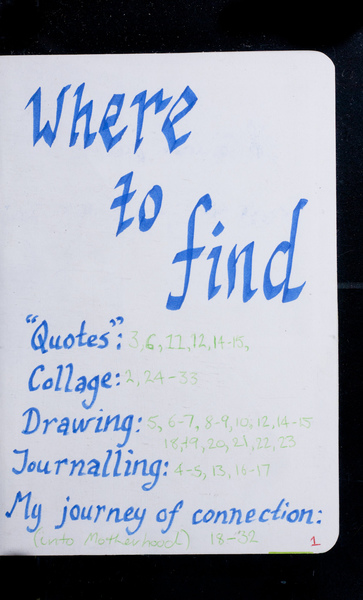 Where
to
find
"Quotes": 3, 6, 11, 12, 14-15,
Collage: 2, 24-33
Drawing: 5, 6-7, 8-9, 10, 12, 14-15
18, 19, 20, 21, 22, 23
Journalling: 4-5, 13, 16-17
My journey of connection:
(into Motherhood) 18-32
1